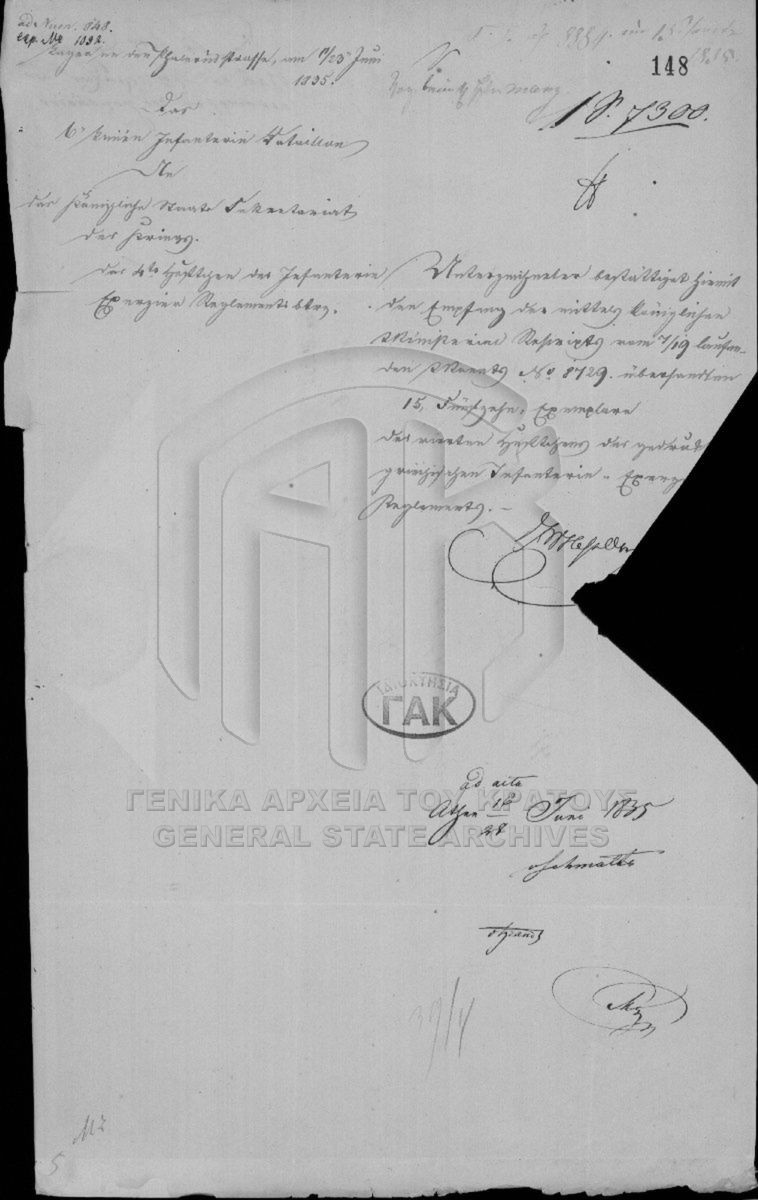 ad Num. 848.
exp. No 1092.
Lager an der Phalerusstrasse, am 11/23 Juni
1835.
148
1 P. 7300.
Das
6te Linien Infanterie Bataillon
An
das Königliche Staats Sekretariat
des Kriegs.
Das 4te Heftchen des Infanterie
Exerzier Reglements btrg.
Unterzeichneter bestättiget hiemit
den Empfang der mittels königlichen
Ministerial Rescripts vom 7/19 laufen-
den Monats No 8729. übersandten
15, Fünfzehn, Exemplare
des vierten Heftchens des gedruk
griechischen Infanterie - Exerz
Reglements. -
ΙΔΙΟΚΤΗΣΙΑ
ΓΑΚ
ad acta
ΓΕΝΙΚΑ ΑΡΧΕΙΑ ΤΟΥ ΚΡΑΤΟΥΣ
Athen 16/28 Juni 1835
GENERAL STATE ARCHIVES
Schmaltz
39/4
112
5